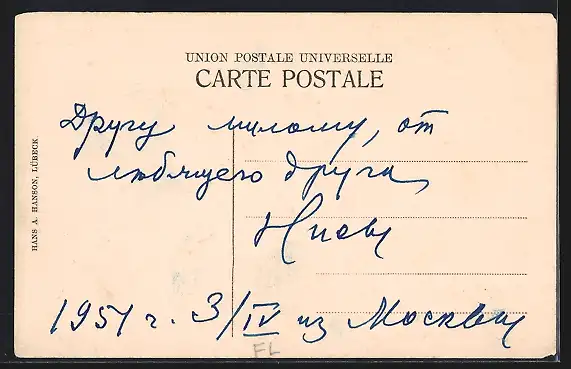 UNION POSTALE UNIVERSELLE
CARTE POSTALE
Другу милому, от
любящего друга
1951 г. 3/IV из Москвы
EL
HANS A. HANSON, LÜBECK.